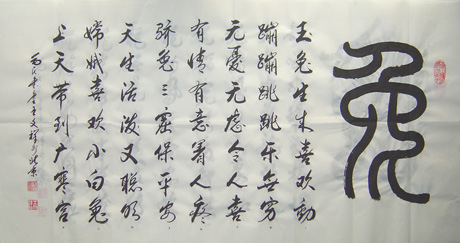 兔
玉兔生来喜欢动
蹦蹦跳跳乐无穷
无憂无虑令人喜
有情有意着人疼
狡兔三窟保平安
天生活泼又聪明
嫦娥喜欢小白兔
上天带到广寒宫